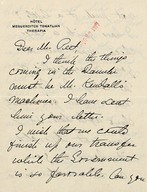 HÔTEL
MESSERVITCE TOKATLIAN
THERAPIA
Dear Mr. Post
I think the things
coming in the launch
must be Mr. Kendall's
machines. I have sent
him your letter.
I wish that we could
finish up our transfer
while the Government
is so favorable. Can you